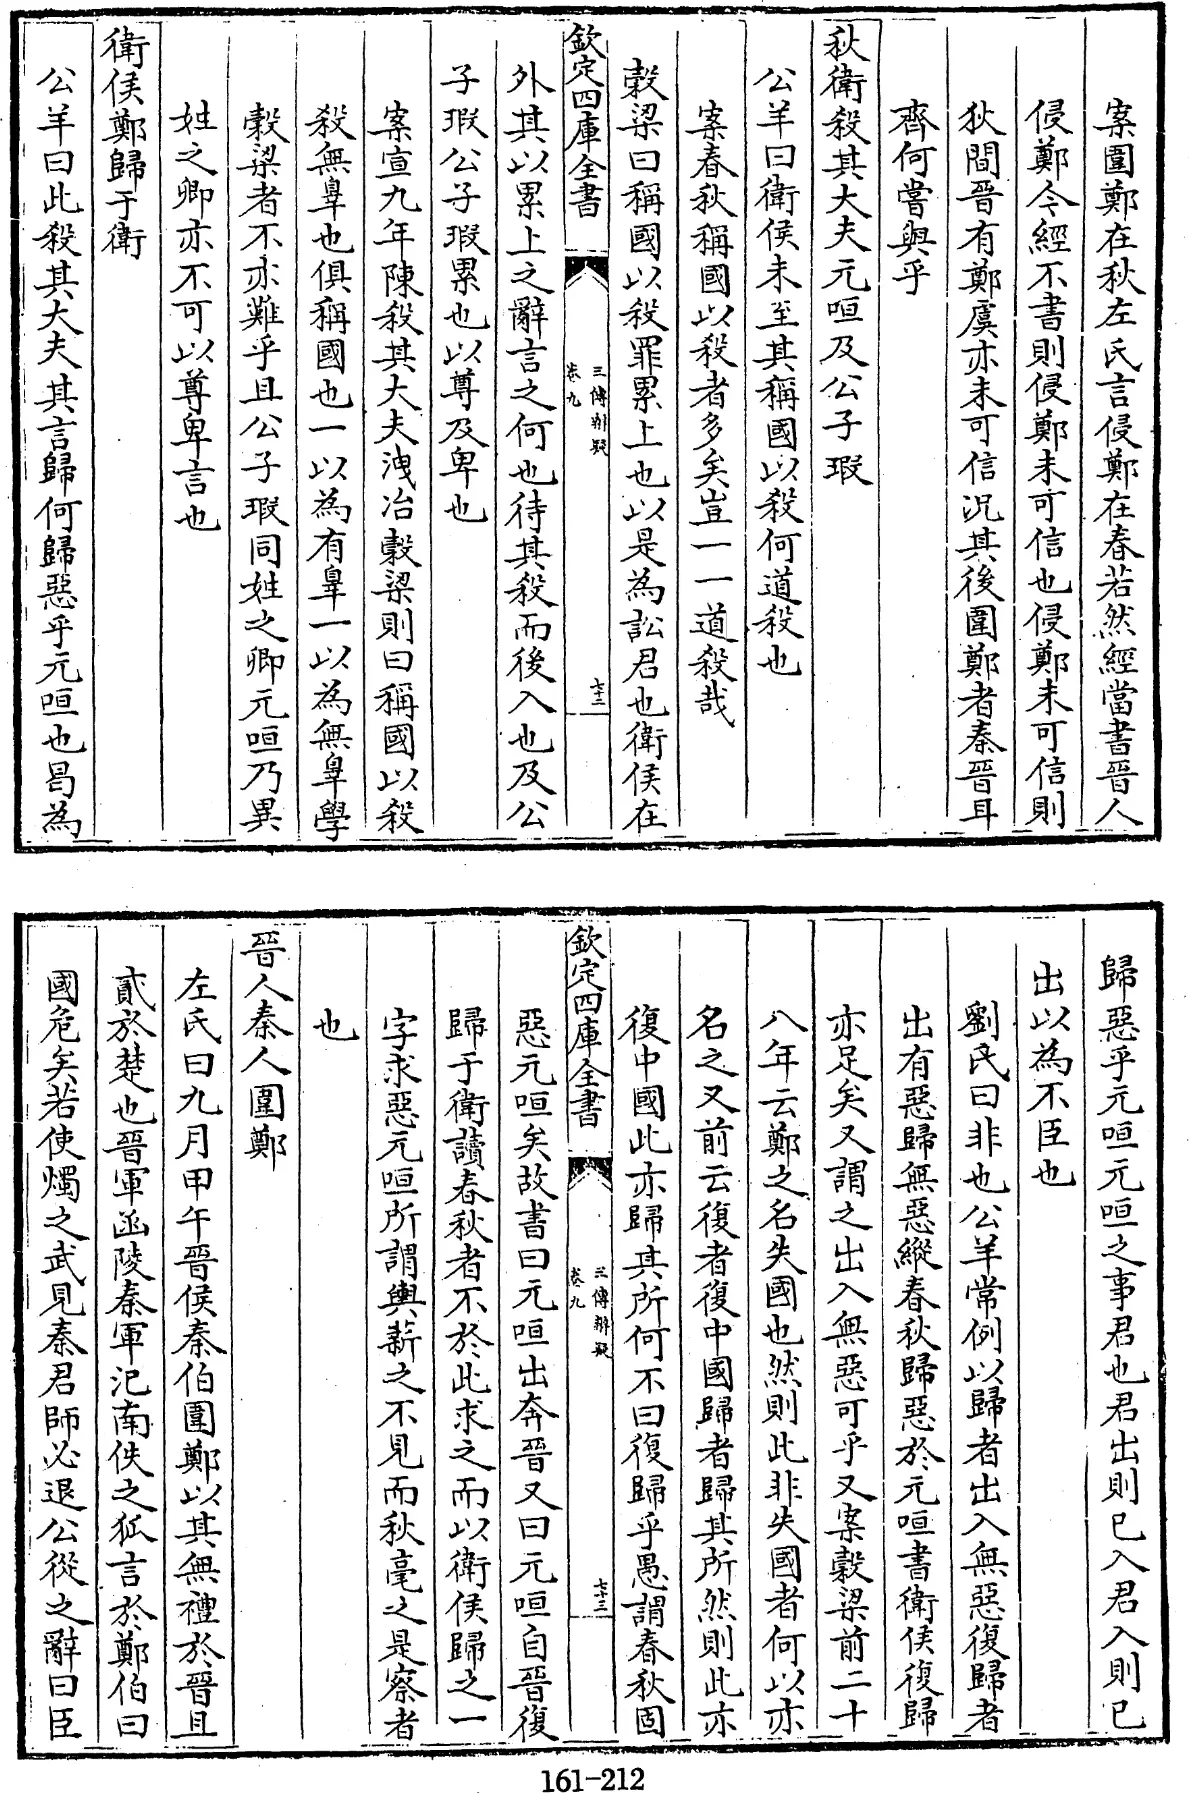 案圍鄭在秋左氏言侵鄭在春若然經當書晉人
侵鄭令經不書則侵鄭未可信也侵鄭未可信則
狄間晉有鄭虞亦未可信況其後圍鄭者秦晉耳
齊何嘗與乎
秋衛殺其大夫元咺及公子瑕
公羊曰衛侯未至其稱國以殺何道殺也
案春秋稱國以殺者多矣豈一一道殺哉
穀梁曰稱國以殺罪累上也以是為訟君也衛侯在
欽定四庫全書
三傳辨疑
卷九
七十二
外其以累上之辭言之何也待其殺而後入也及公
子瑕公子瑕累也以尊及卑也
案宣九年陳殺其大夫洩冶穀梁則曰稱國以殺
殺無辠也俱稱國也一以為有辠一以為無辠學
穀梁者不亦難乎且公子瑕同姓之卿元咺乃異
姓之卿亦不可以尊卑言也
衛侯鄭歸于衛
公羊曰此殺其大夫其言歸何歸惡乎元咺也曷為
歸惡乎元咺元咺之事君也君出則已入君入則已
出以為不臣也
劉氏曰非也公羊常例以歸者出入無惡復歸者
出有惡歸無惡縱春秋歸惡於元咺書衛侯復歸
亦足矣又謂之出入無惡可乎又案穀梁前二十
八年云鄭之名失國也然則此非失國者何以亦
名之又前云復者復中國歸者歸其所然則此亦
復中國此亦歸其所何不曰復歸乎愚謂春秋固
欽定四庫全書
三傳辨疑
卷九
七十三
惡元咺矣故書曰元咺出奔晉又曰元咺自晉復
歸于衛讀春秋者不於此求之而以衛侯歸之一
字求惡元咺所謂輿薪之不見而秋毫之是察者
也
晉人秦人圍鄭
左氏曰九月甲午晉侯秦伯圍鄭以其無禮於晉且
貳於楚也晉軍函陵秦軍氾南佚之狐言於鄭伯曰
國危矣若使燭之武見秦君師必退公從之辭曰臣
161-212